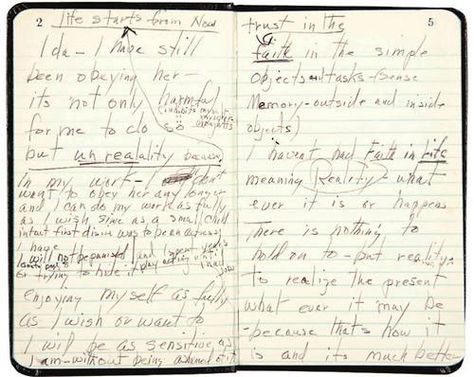 2
life starts from Now
Ida – I have still
been obeying her –
its not only harmful
for me to do so
inhibits my work
but unreality because
In my work – I don't
want to obey her any longer
and I can do my work as fully
as I wish since as a small child
intact first desire was to be an actress
I have
I will not be punished and I spent years
or trying to hide it
play acting until I had
enjoying myself as fully
as I wish or want to
I will be as sensitive as
I am – without being ashamed of it
5
trust in the
faith in the simple
objects and tasks – (sense
Memory – outside and inside
objects)
I havent had Faith in Life
meaning Reality – what
ever it is or happens
There is nothing to
hold on to – but reality
to realize the present
what ever it may be
– because that's how it
is and its much better